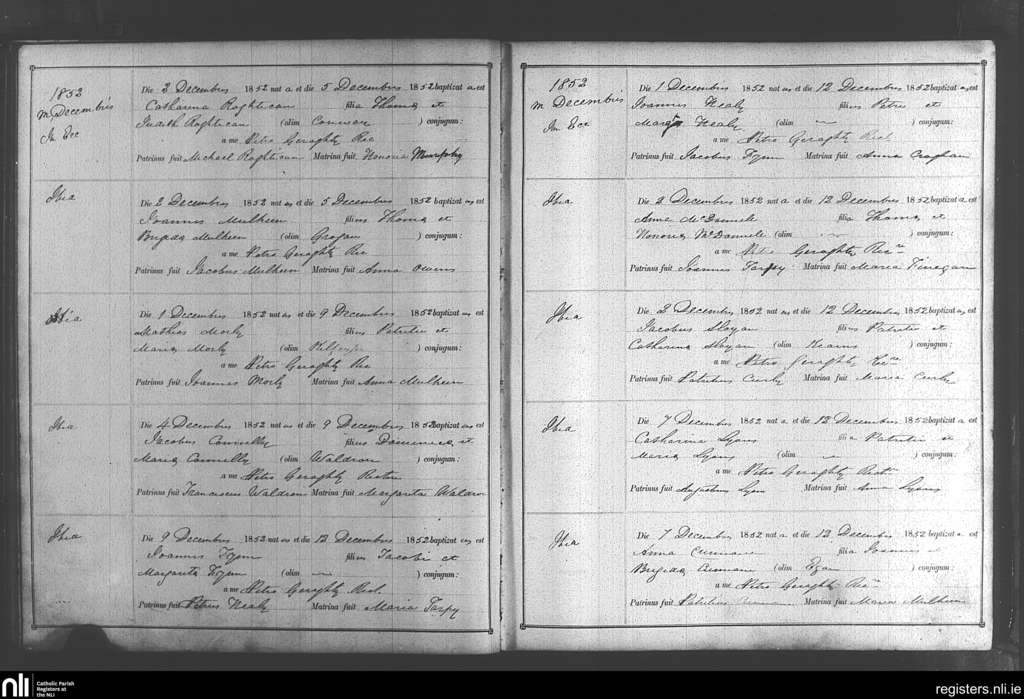 1852
m Decembris
In Ecc
Die 2 Decembris 1852 nat a et die 5 Decembris 1852 baptizat a est
Catharina Roghtican filia Thoma et
Judith Roghtican (olim Conway ) conjugum:
a me Petro Geraghty Rec
Patrinus fuit Michael Roghtican Matrina fuit Honoria Murphy
Ibia
Die 2 Decembris 1852 nat us et die 5 Decembris 1852 baptizat us est
Joannes Mulheen filius Thoma et
Brigida Mulheen (olim Grogan ) conjugum:
a me Petro Geraghty Rec
Patrinus fuit Jacobus Mulheen Matrina fuit Anna Owens
Ibia
Die 1 Decembris 1852 nat us et die 9 Decembris 1852 baptizat us est
Mathias Morly filius Patritii et
Maria Morly (olim ) conjugum:
a me Petro Geraghty Rec
Patrinus fuit Joannes Morly Matrina fuit Anna Mulheen
Ibia
Die 4 Decembris 1852 nat us et die 9 Decembris 1852 baptizat us est
Jacobus Connelly filius Dominici et
Maria Connelly (olim Waldron ) conjugum:
a me Petro Geraghty Rectore
Patrinus fuit Franciscus Waldron Matrina fuit Margarita Waldron
Ibia
Die 9 Decembris 1852 nat us et die 12 Decembris 1852 baptizat us est
Joannes Fynn filius Jacobi et
Margarita Fynn (olim — ) conjugum:
a me Petro Geraghty Rect
Patrinus fuit Petrus Healy Matrina fuit Maria Tarpy
1852
m Decembris
In Ecc
Die 1 Decembris 1852 nat us et die 12 Decembris 1852 baptizat us est
Joannes Healy filius Petri et
Margt Healy (olim — ) conjugum:
a me Petro Geraghty Rect
Patrinus fuit Jacobus Fynn Matrina fuit Anna Craghan
Ibia
Die 2 Decembris 1852 nat a et die 12 Decembris 1852 baptizat a est
Anne McDannele filia Thoma et
Honoria McDannele (olim — ) conjugum:
a me Petro Geraghty Rec
Patrinus fuit Joannes Tarpey Matrina fuit Maria Finegan
Ibia
Die 2 Decembris 1852 nat us et die 12 Decembris 1852 baptizat us est
Jacobus Sloyan filius Patritii et
Catharina Sloyan (olim Kearns ) conjugum:
a me Petro Geraghty Rec
Patrinus fuit Patritius Curly Matrina fuit Maria Curly
Ibia
Die 7 Decembris 1852 nat a et die 12 Decembris 1852 baptizat a est
Catharina Lyons filia Patritii et
Maria Lyons (olim — ) conjugum:
a me Petro Geraghty Rect
Patrinus fuit Augustus Lyons Matrina fuit Anna Lyons
Ibia
Die 7 Decembris 1852 nat a et die 12 Decembris 1852 baptizat a est
Anna Cunnane filia Joannis et
Brigida Cunnane (olim Egan ) conjugum:
a me Petro Geraghty Rec
Patrinus fuit Patritius Matrina fuit Maria Mulheen
nli
Catholic Parish
Registers at
the NLI
registers.nli.ie